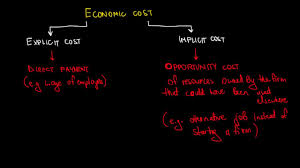 ECONOMIC COST
EXPLICIT COST
IMPLICIT COST
DIRECT PAYMENT
(e.g. wage of employee)
OPPORTUNITY COST
of resources owned by the firm
that could have been used
elsewhere
(e.g. alternative job instead of
starting a firm)